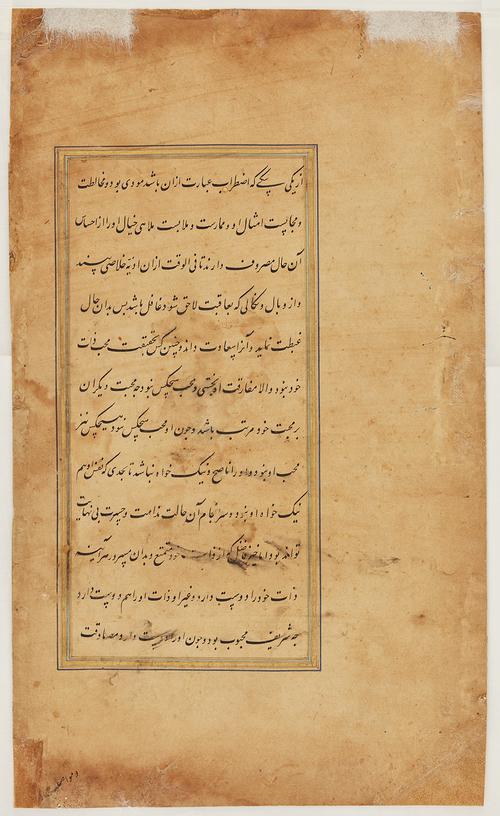 از یکی بیکی که اضطراب عبارت ازان باشد مودی بود و مخالطت
و مجالست امثال او و ممارست و ملابست ملاهی خیال او را از احساس
آن حال مصروف دارند تا فی الوقت ازان اذیة خلاصی بیند
و از وبال و نکالی که بعاقبت لاحق شود غافل باشد پس بدان حال
غبطت نماید و آنرا سعادت داند و چنین کس بحقیقت محب ذات
خود نبود والا مفارقت او نجستی و محب هیچکس نبود چه محبت دیگران
بر محبت خود مرتب باشد و چون او محب هیچکس نبود هیچکس نیز
محب او نبود و او را ناصح و نیک خواه نباشد تا بحدی که نفس او هم
نیک خواه او نبود و سرنجام آن حالت ندامت و حسرت بی نهایت
تواند بود و اما خیر فاضل که از ذات خود متمتع و بدان مسرور هرآینه
ذات خود را دوست دارد و غیر او ذات او را هم دوست دارد
چه شریف محبوب بود و چون او را دوست دارد و مصادقت
و مواصلت